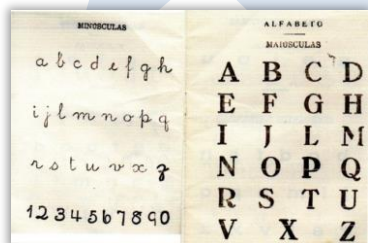 MINÚSCULAS
a b c d e f g h
i j l m n o p q
r s t u v x z
1 2 3 4 5 6 7 8 9 0
ALFABETO
MAIÚSCULAS
A B C D
E F G H
I J L M
N O P Q
R S T U
V X Z